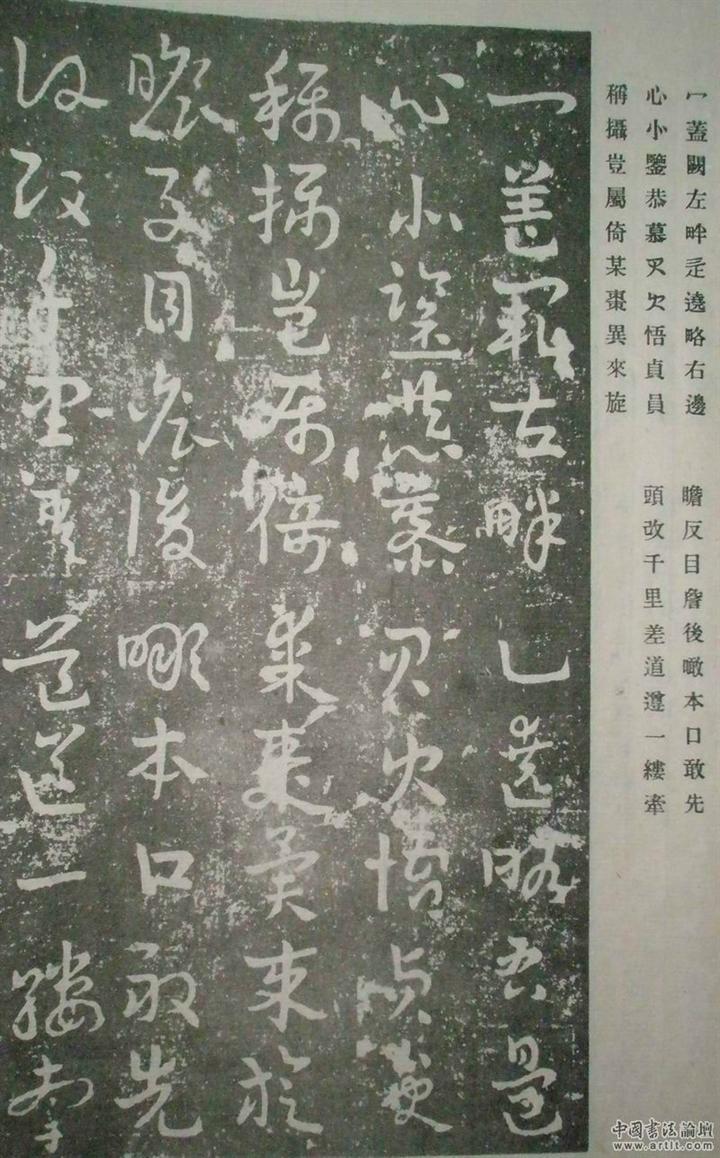 冖蓋闕左畔辵遶略右邊
心小鑒恭慕㕛欠悟貞員
稱攝豈屬倚某棗異來旋
瞻反目詹後噉本口敢先
頭改千里差道遵一縷牽
冖蓋闕左畔辵遶略右邊
心小鑒恭慕㕛欠悟貞員
稱攝豈屬倚某棗異來旋
瞻反目詹後噉本口敢先
頭改千里差道遵一縷牽
中國書法論壇
www.artlt.com